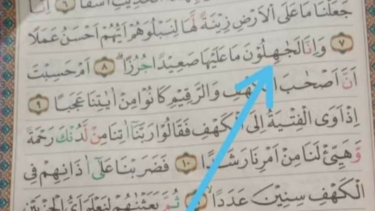 أَسَفًا ٦ إِنَّا
جَعَلْنَا مَا عَلَى الْأَرْضِ زِينَةً لَّهَا لِنَبْلُوَهُمْ أَيُّهُمْ أَحْسَنُ عَمَلًا
٧ وَإِنَّا لَجٰهِلُوْنَ مَا عَلَيْهَا صَعِيدًا جُرُزًا ٨ أَمْ حَسِبْتَ
أَنَّ أَصْحٰبَ الْكَهْفِ وَالرَّقِيمِ كَانُوا مِنْ اٰيٰتِنَا عَجَبًا ٩
إِذْ أَوَى الْفِتْيَةُ إِلَى الْكَهْفِ فَقَالُوا رَبَّنَا اٰتِنَا مِن لَّدُنكَ رَحْمَةً
وَهَيِّئْ لَنَا مِنْ أَمْرِنَا رَشَدًا ١٠ فَضَرَبْنَا عَلَى اٰذَانِهِمْ فِي
الْكَهْفِ سِنِينَ عَدَدًا ثُمَّ بَعَثْنٰهُمْ لِنَعْلَمَ أَيُّ الْحِزْبَيْنِ